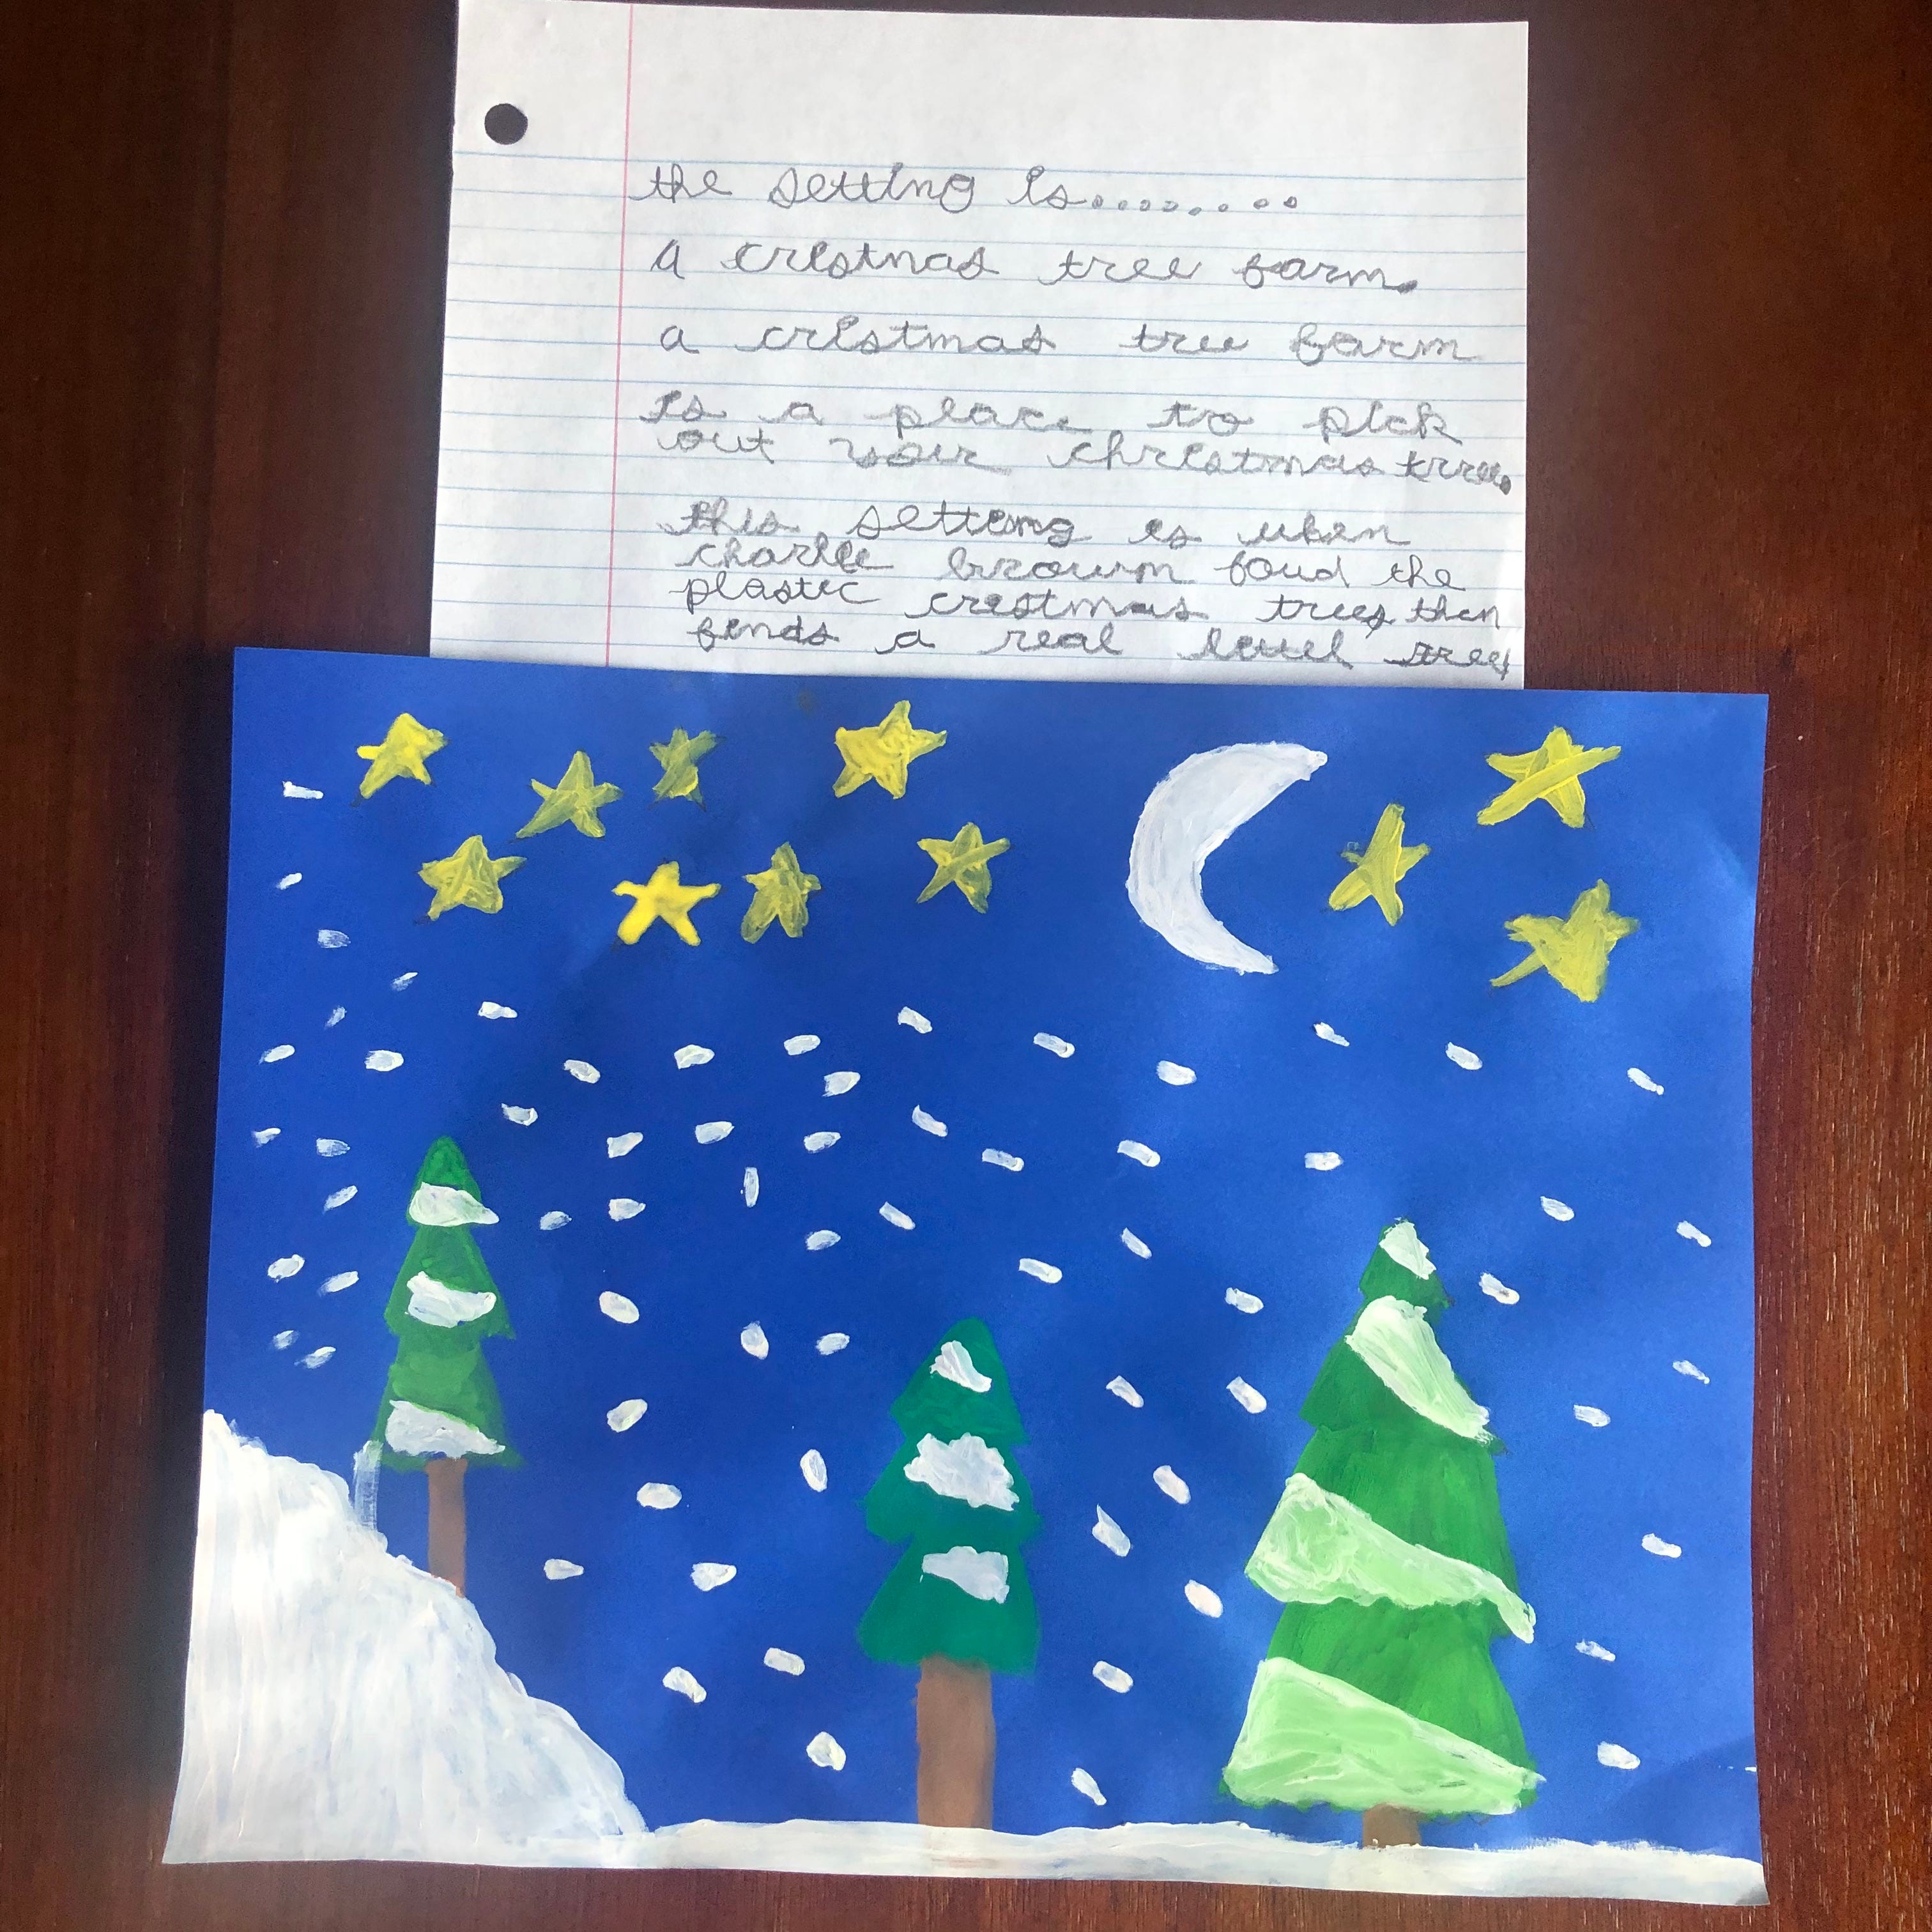 the setting is.........
a crestnas tree farm.
a cristmas tree farm
is a place to pick
out your christmas tree.
this setting is when
charlie brown foud the
plastic crestmas trees then
finds a real tree